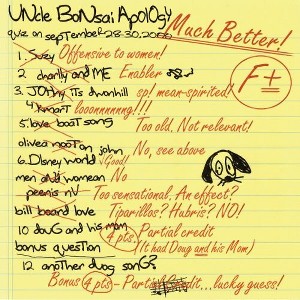 UNcle BoNsai ApolOgy
Much Better!
quiz on september 28-30, 2006
F±
1. Suzy Offensive to women!
2. charlly and ME Enabler
3. JOHny its dwnhill sp! mean-spirited!
4 kmart looonnnnnng!!!
5. love boat song Too old. Not relevant!
olivea noot on john No, see above
6. Disney world √Good!
men and womean No
peenis nV Too sensational. An effect?
bill board love Tiparillos? Hubris? NO!
10 douG and his mom 4 pts. Partial credit
bonus question (It had Doug and his Mom)
12 another dog sonG?
Bonus 4 pts - Partial Credit...lucky guess!